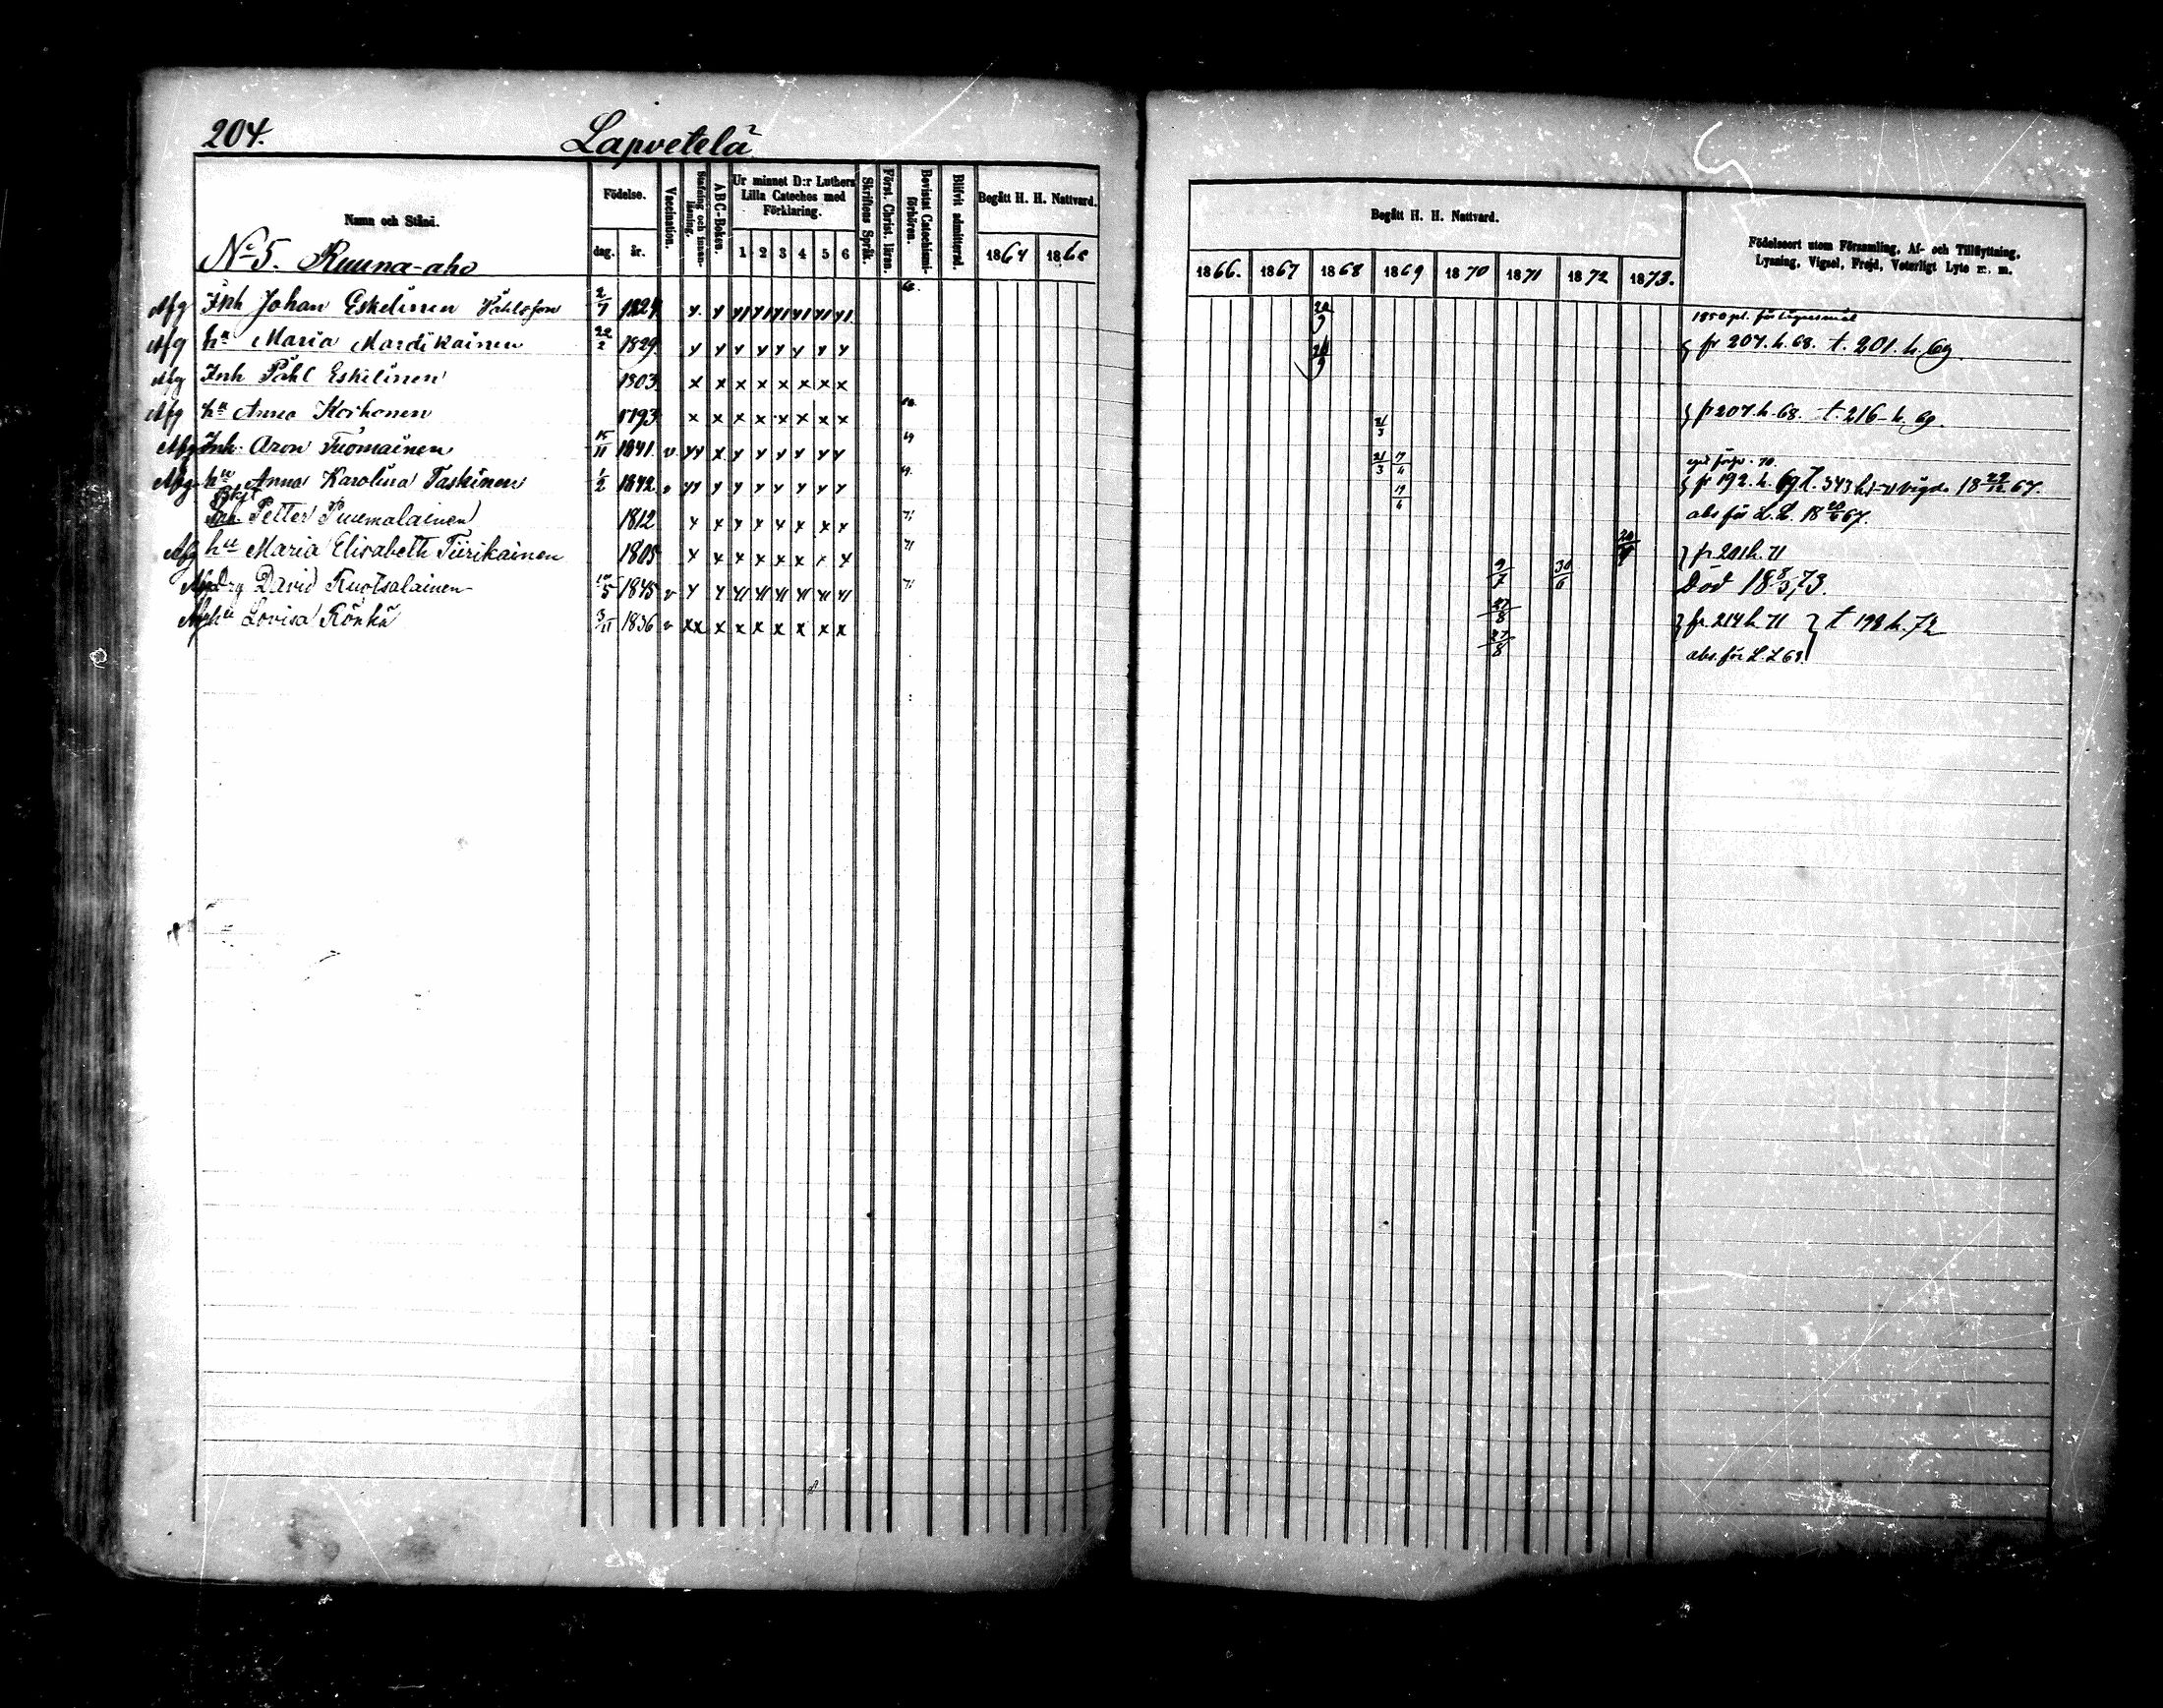 204.
Lapvetelä
Namn och Stånd.
Födelse.
dag. år.
Vaccination.
Stafning och innanläsning.
ABC-Boken.
Ur minnet D:r Luthers Lilla Cateches med Förklaring.
1 2 3 4 5 6
Skriftens Språk.
Först. Christ. läran.
Bevistat Catechismiförhören.
Blifvit admitterad.
Begått H. H. Nattvard.
1864
Begått H. H. Nattvard.
1866. 1867 1868 1869 1870 1871 1872 1873.
Födelseort utom Församling, Af- och Tillflyttning,
Lysning, Vigsel, Frejd, Veterligt Lyte m. m.
No 5. Ruuna-aho
Afg Inh Johan Eskelinen Påhlsson 2/7 20/9
Afg hu Maria Mardikainen 22/2 1829 y y y y y y y y fr 207. h. 68. t. 201. h. 69
Afg Inh Påhl Eskelinen 1803 x x x x x x x x
Afg hu Anna Korhonen 1793 x x x x x x x x fr 207. h. 68. t. 216 h. 69.
Afg Inh. Aron Tuomainen 15/11 1841 v yy x y y y y y y 69 21/3
Afg hu Anna Karolina Taskinen 1/2 1842 v yy y y y y y y y 69. 21/3 fr 192. h. 69 t. 343 h. vigde 18 67.
Petter Puumalainen 1812 x x x x x x x x 71 abs för L. L. 18 67.
Afg hu Maria Elisabeth Tiirikainen 1805 x x x x x x x x 71 fr 201 h. 71
Afg Drg David Ruotsalainen 1845 v 71 9/7 30/6 Död 18 8/3 73.
Afg hu Lovisa Rönkä 3/11 1836 v xx x x x x x x x 27/8 fr. 214 h. 71 t 198 h. 72
27/8 abs. för L. L 68.